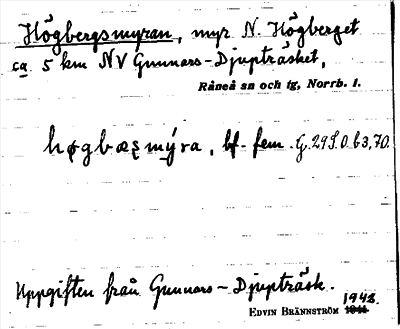 Högbergsmyran, myr N. Högberget
ca 5 km NV Gunnars-Djupträsket,
Råneå sn och tg, Norrb. l.
høgbæʂmýra, bf. fem. G. 29 S. 0. 63,70.
Uppgiften från Gunnars-Djupträsk.
1942.
Edvin Brännström 1941